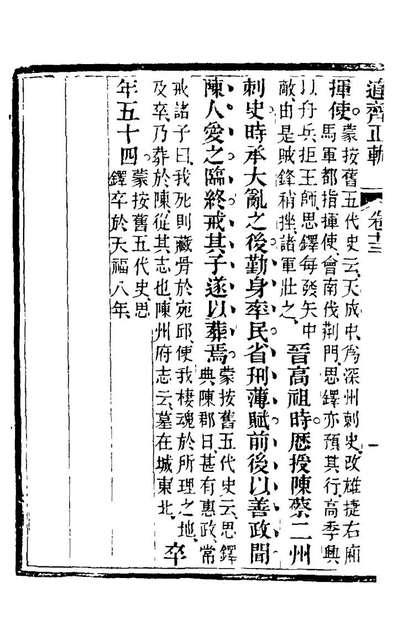 道齊正軌 卷十三 一
揮使蒙按舊五代史云天成中為深州刺史改雄捷右廂
馬軍都指揮使會南伐荊門思鐸亦預其行高季興
以舟兵拒王師思鐸每發矢中
敵由是賊鋒稍挫諸軍壯之
晉高祖時歷授陳蔡二州
刺史時承大亂之後勤身率民省刑薄賦前後以善政聞
陳人愛之臨終戒其子遂以葬焉蒙按舊五代史云思鐸
典陳郡日甚有惠政常
戒諸子曰我死則藏骨於宛邱使我棲魂於所理之地
及卒乃葬於陳從其志也陳州府志云墓在城東北
卒
年五十四蒙按舊五代史思
鐸卒於天福八年